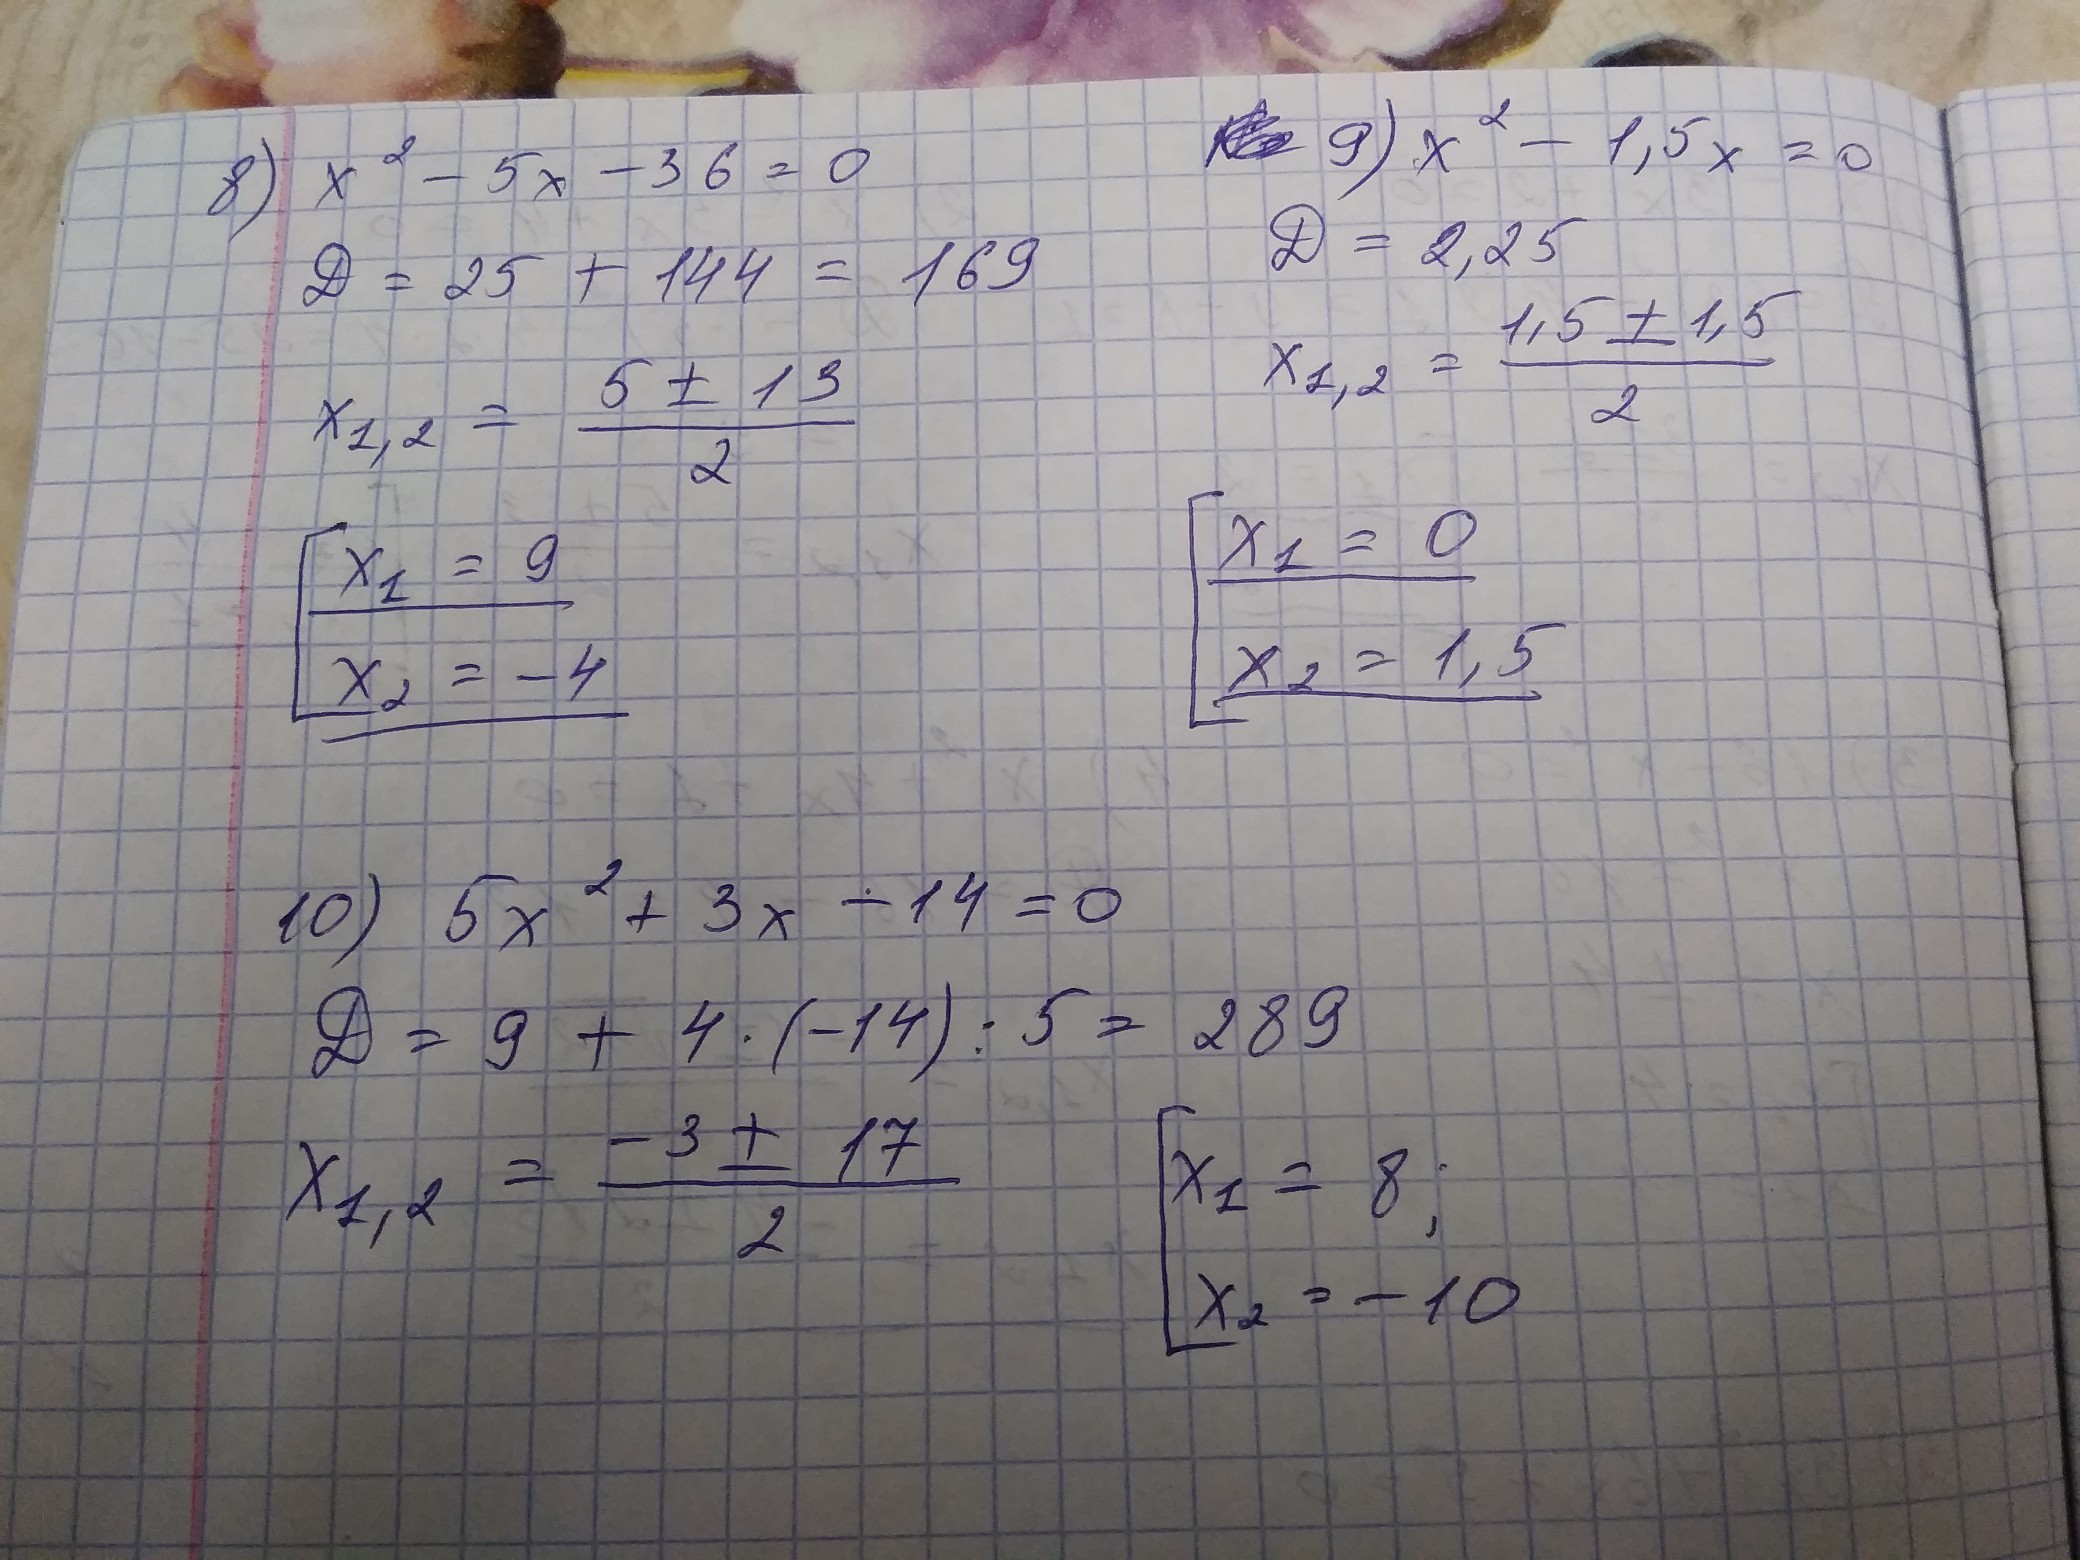 8) x² - 5x - 36 = 0
D = 25 + 144 = 169
x₁,₂ = (5 ± 13) / 2
[x₁ = 9
x₂ = -4
9) x² - 1,5x = 0
D = 2,25
x₁,₂ = (1,5 ± 1,5) / 2
[x₁ = 0
x₂ = 1,5
10) 5x² + 3x - 14 = 0
D = 9 + 4·(-14):5 = 289
x₁,₂ = (-3 ± 17) / 2
[x₁ = 8;
x₂ = -10